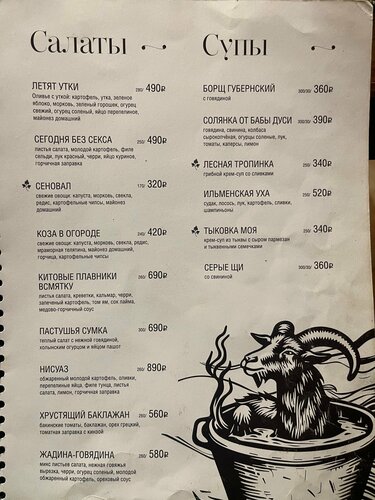 Салаты
ЛЕТЯТ УТКИ 280/ 490₽
Оливье с уткой: картофель, утка, зеленое
яблоко, морковь, зеленый горошек, огурец
свежий, огурец соленый, яйцо перепелиное,
майонез домашний
СЕГОДНЯ БЕЗ СЕКСА 250/ 490₽
листья салата, молодой картофель, филе
сельди, лук красный, черри, яйцо куриное,
горчичная заправка
СЕНОВАЛ 170/ 320₽
свежие овощи: капуста, морковь, свекла,
редис, картофельные чипсы, майонез
домашний
КОЗА В ОГОРОДЕ 240/ 420₽
свежие овощи: капуста, морковь, свекла, редис,
мраморная телятина, майонез домашний,
горчица, картофельные чипсы
КИТОВЫЕ ПЛАВНИКИ 260/ 690₽
ВСМЯТКУ
листья салата, креветки, кальмар, черри,
запеченный картофель, том ям, сок лайма,
медово-горчичный соус
ПАСТУШЬЯ СУМКА 300/ 690₽
теплый салат с нежной говядиной,
юльским огурцом и яйцом пашот
НИСУАЗ 260/ 890₽
обжаренный молодой картофель, оливки,
перепелиные яйца, филе тунца, листья
салата, лимон, горчичная заправка
ХРУСТЯЩИЙ БАКЛАЖАН 250/ 560₽
бакинские томаты, баклажан, орех грецкий,
томатная заправка с кинзой
ЖАДИНА-ГОВЯДИНА 250/ 580₽
микс листьев салата, нежная говяжья
вырезка, черри, огурец соленый, молодой
обжаренный картофель, ореховый соус
Супы
БОРЩ ГУБЕРНСКИЙ 300/30/ 360₽
с говядиной
СОЛЯНКА ОТ БАБЫ ДУСИ 300/30/ 390₽
говядина, свинина, колбаса
сырокопчёная, огурцы соленые, лук,
томаты, каперсы, лимон
ЛЕСНАЯ ТРОПИНКА 250/ 340₽
грибной крем-суп со сливками
ИЛЬМЕНСКАЯ УХА 250/ 520₽
судак, лосось, лук, картофель, сливки,
шампиньоны
ТЫКОВКА МОЯ 250/ 340₽
крем-суп из тыквы с сыром пармезан
и тыквенными семечками
СЕРЫЕ ЩИ 300/30/ 360₽
со свининой